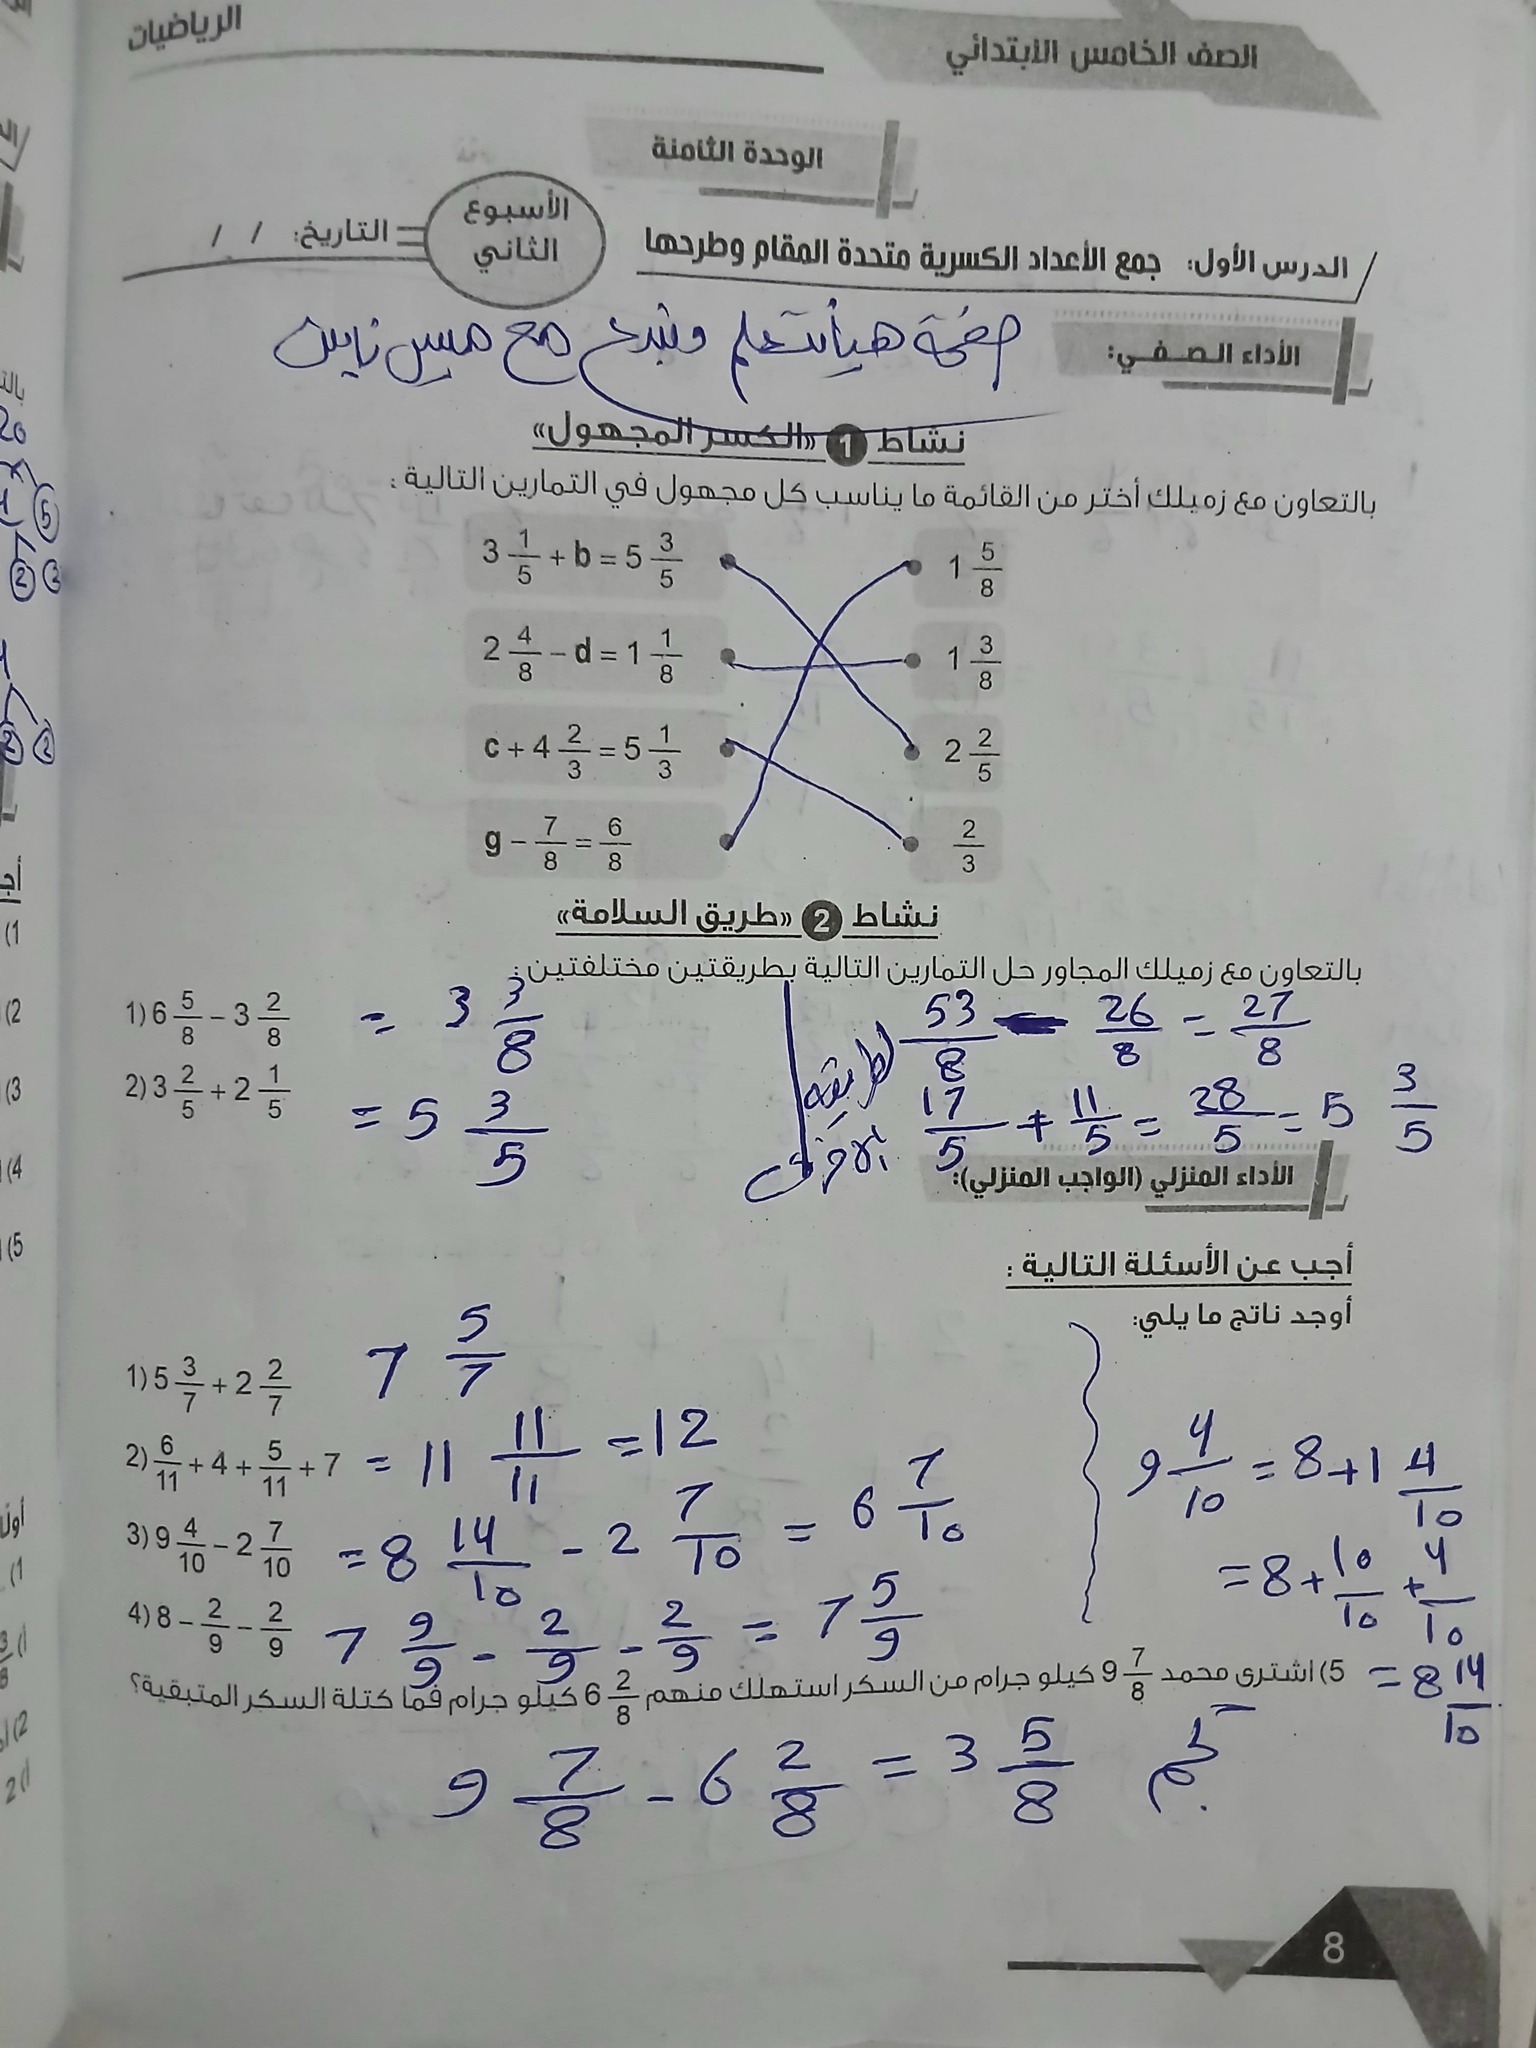 الصف الخامس الابتدائي
الرياضيات
الوحدة الثامنة
الدرس الأول: جمع الأعداد الكسرية متحدة المقام وطرحها
الأسبوع الثاني
التاريخ: / /
الأداء الصفي:
صفحة هيا نتعلم ونبدع مع ميس
نشاط 1 «الكسر المجهول»
بالتعاون مع زميلك أختر من القائمة ما يناسب كل مجهول في التمارين التالية :
3 1/5 + b = 5 3/5
1 5/8
2 4/8 - d = 1 1/8
1 3/8
c + 4 2/3 = 5 1/3
2 2/5
g - 7/8 = 6/8
2/3
نشاط 2 «طريق السلامة»
بالتعاون مع زميلك المجاور حل التمارين التالية بطريقتين مختلفتين:
1) 6 5/8 - 3 2/8 = 3 3/8
53/8 - 26/8 = 27/8
2) 3 2/5 + 2 1/5 = 5 3/5
طريقة أخرى
17/5 + 11/5 = 28/5 = 5 3/5
الأداء المنزلي (الواجب المنزلي):
أجب عن الأسئلة التالية :
أوجد ناتج ما يلي:
1) 5 3/7 + 2 2/7 7 5/7
2) 6/11 + 4 + 5/11 + 7 = 11 11/11 = 12
3) 9 4/10 - 2 7/10 = 8 14/10 - 2 7/10 = 6 7/10
9 4/10 = 8 + 1 4/10
= 8 + 10/10 + 4/10
= 8 14/10
4) 8 - 2/9 - 2/9 7 9/9 - 2/9 - 2/9 = 7 5/9
5) اشترى محمد 9 7/8 كيلو جرام من السكر استهلك منهم 6 2/8 كيلو جرام فما كتلة السكر المتبقية؟
9 7/8 - 6 2/8 = 3 5/8
8